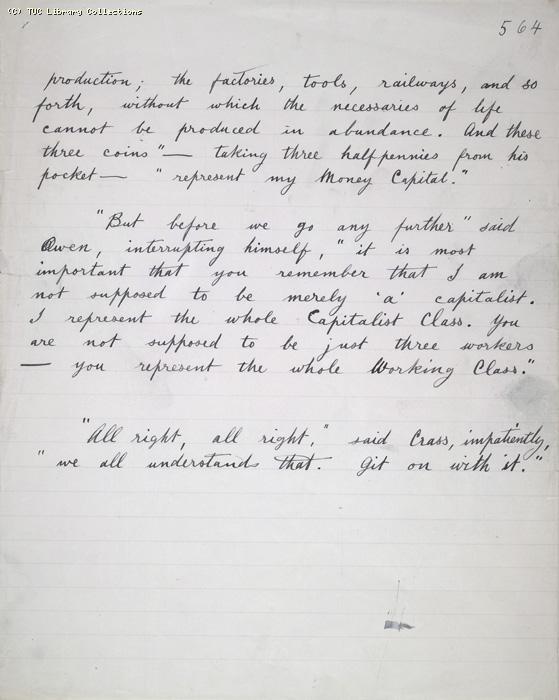 (C) TUC Library Collections
564
production; the factories, tools, railways, and so
forth, without which the necessaries of life
cannot be produced in abundance. And these
three coins" — taking three halfpennies from his
pocket — "represent my Money Capital."
"But before we go any further" said
Owen, interrupting himself, "it is most
important that you remember that I am
not supposed to be merely 'a' capitalist.
I represent the whole Capitalist Class. You
are not supposed to be just three workers
— you represent the whole Working Class."
"All right, all right," said Crass, impatiently,
"we all understands that. Git on with it."